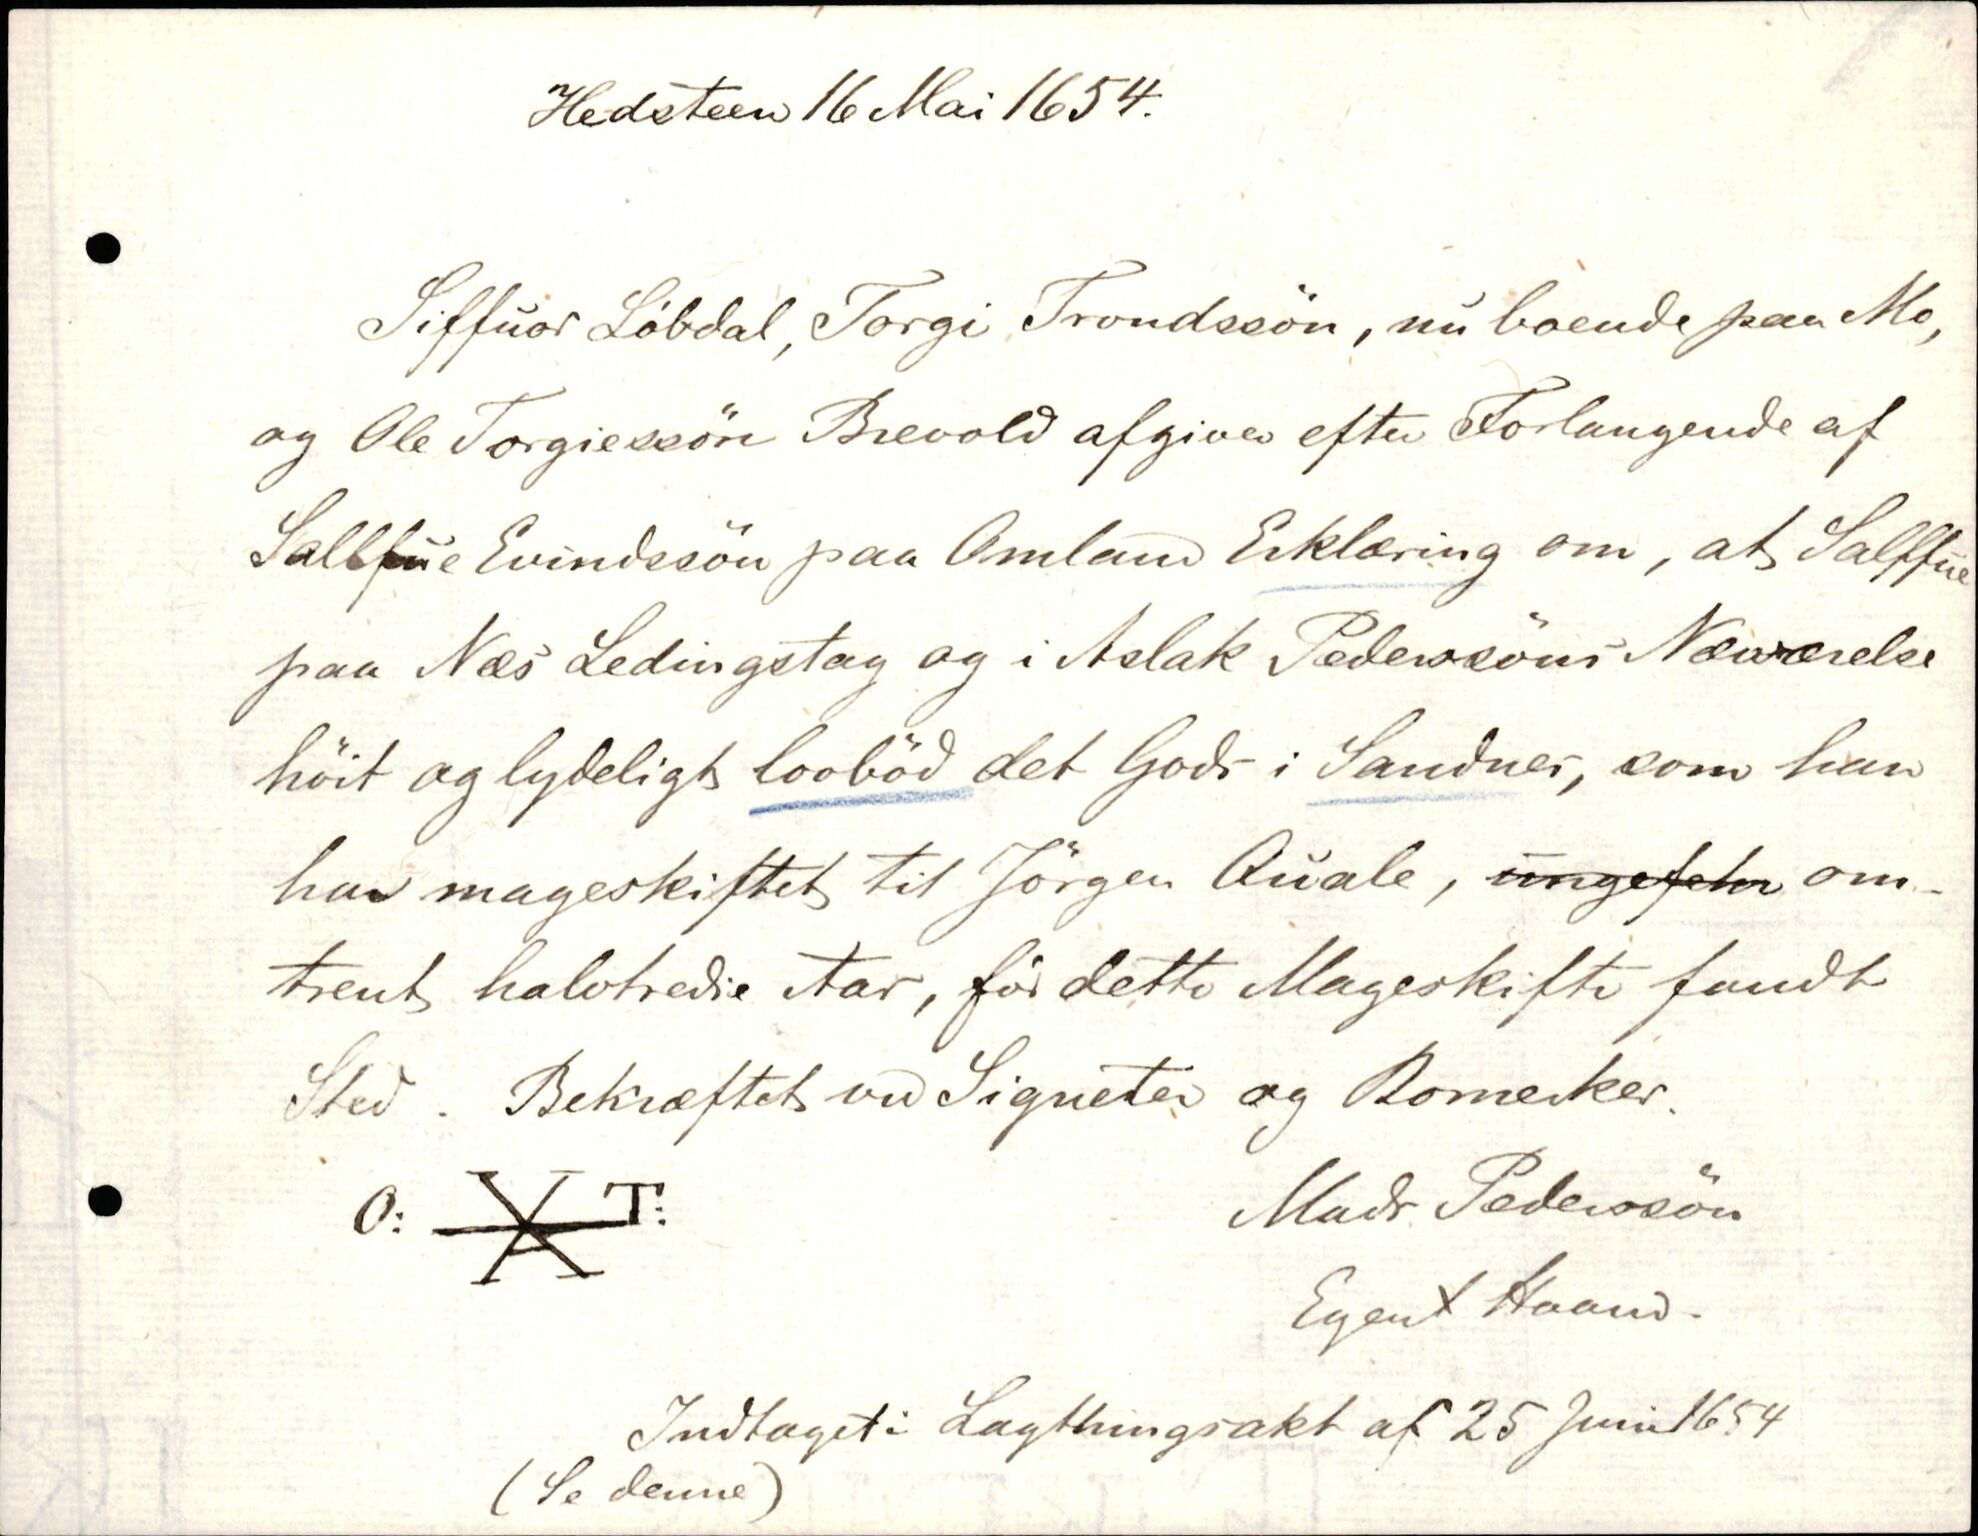 Hedsteen 16 Mai 1654.
Siffuor Löbdal, Torgi Trondssön, nu boende paa Mo,
og Ole Torgiessön Brevold afgiver efter Forlangende af
Salffue Evindssön paa Omland Erklæring om, at Salffue
paa Næs Ledingstag og i Aslak Pederssöns Nærværelse
höit og lydeligt lovböd det Gods i Sandnes, som han
har mageskiftet til Jörgen Quale, ungefehr om-
trent halvtredie Aar, för dette Mageskifte fandt
Sted. Bekræftet ved Signeter og Bomerker.
O: T:
Mads Pederssön
Egen Haand.
Indtaget i Lagthingsakt af 25 Juni 1654
(Se denne)